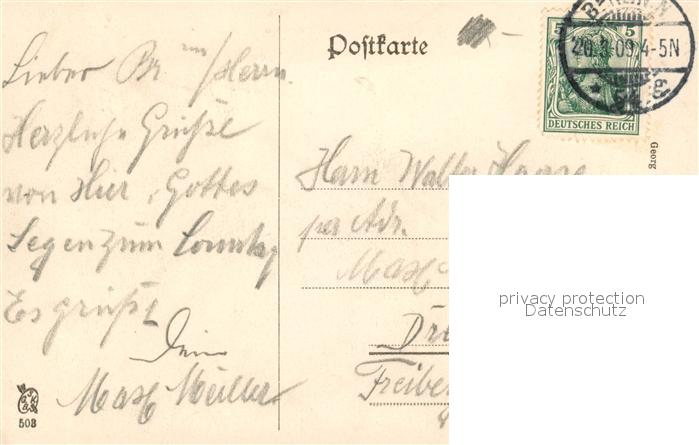 Postkarte
BERLIN.N
20.3.09.4-5N
5
DEUTSCHES REICH
Georg
Lieber Br im Herrn.
Herzliche Grüße
von Hier, Gottes
Segen zum Sonntag
Es grüßt
Dein
Max Müller
Herrn Walter Haase
per Adr.
Max
Dre
Freiber
privacy protection
Datenschutz
503